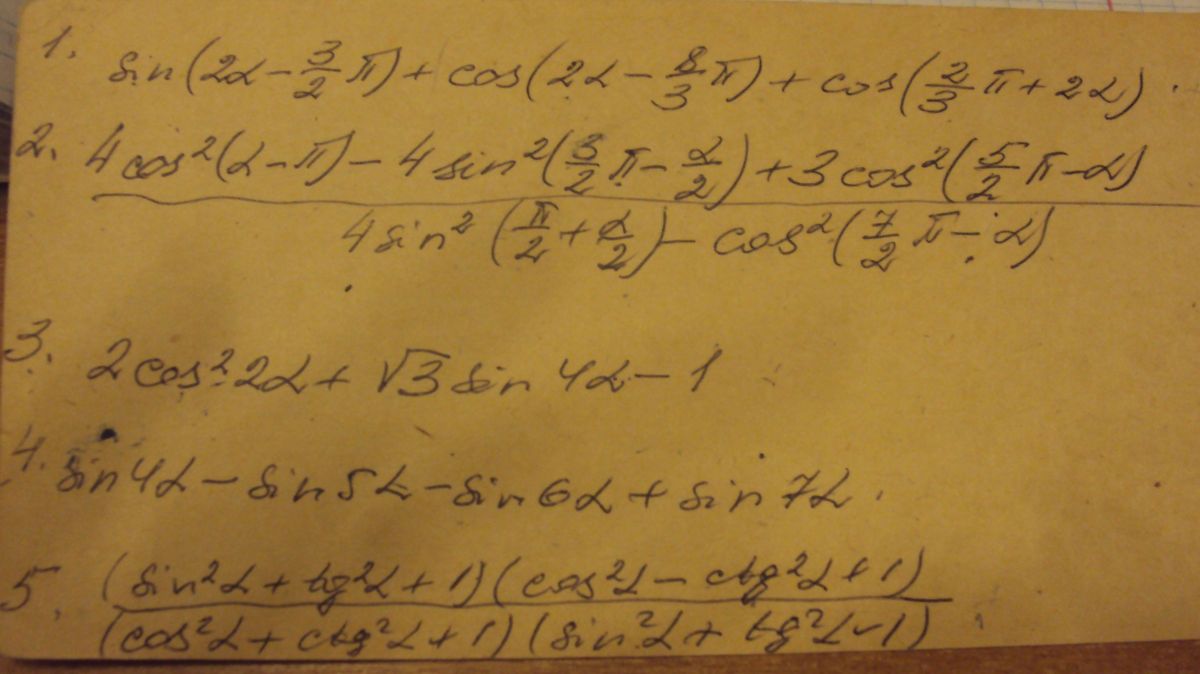 1. sin(2α − 3/2 π) + cos(2α − 8/3 π) + cos(2/3 π + 2α)
2. 4cos²(α − π) − 4sin²(3/2 π − α/2) + 3cos²(5/2 π − α)
4sin²(π/2 + α/2) − cos²(7/2 π − α)
3. 2cos²2α + √3 sin4α − 1
4. sin4α − sin5α − sin6α + sin7α
5. (sin²α + tg²α + 1)(cos²α − ctg²α + 1)
(cos²α + ctg²α + 1)(sin²α + tg²α − 1)